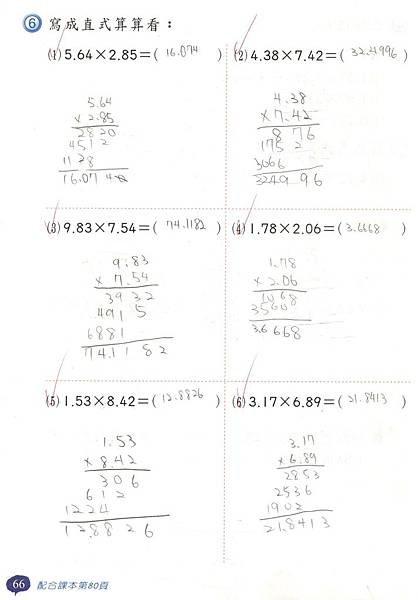 6 寫成直式算算看：
(1) 5.64×2.85=( 16.074 )
5.64
× 2.85
2820
4512
1128
16.0740
(2) 4.38×7.42=( 32.4996 )
4.38
× 7.42
876
1752
3066
3249 96
(3) 9.83×7.54=( 74.1182 )
9.83
× 7.54
3932
4915
6881
741182
(4) 1.78×2.06=( 3.6668 )
1.78
× 2.06
1068
3560
3.6668
(5) 1.53×8.42=( 12.8826 )
1.53
× 8.42
306
612
1224
12.8826
(6) 3.17×6.89=( 21.8413 )
3.17
× 6.89
2853
2536
1902
21.8413
66 配合課本第80頁